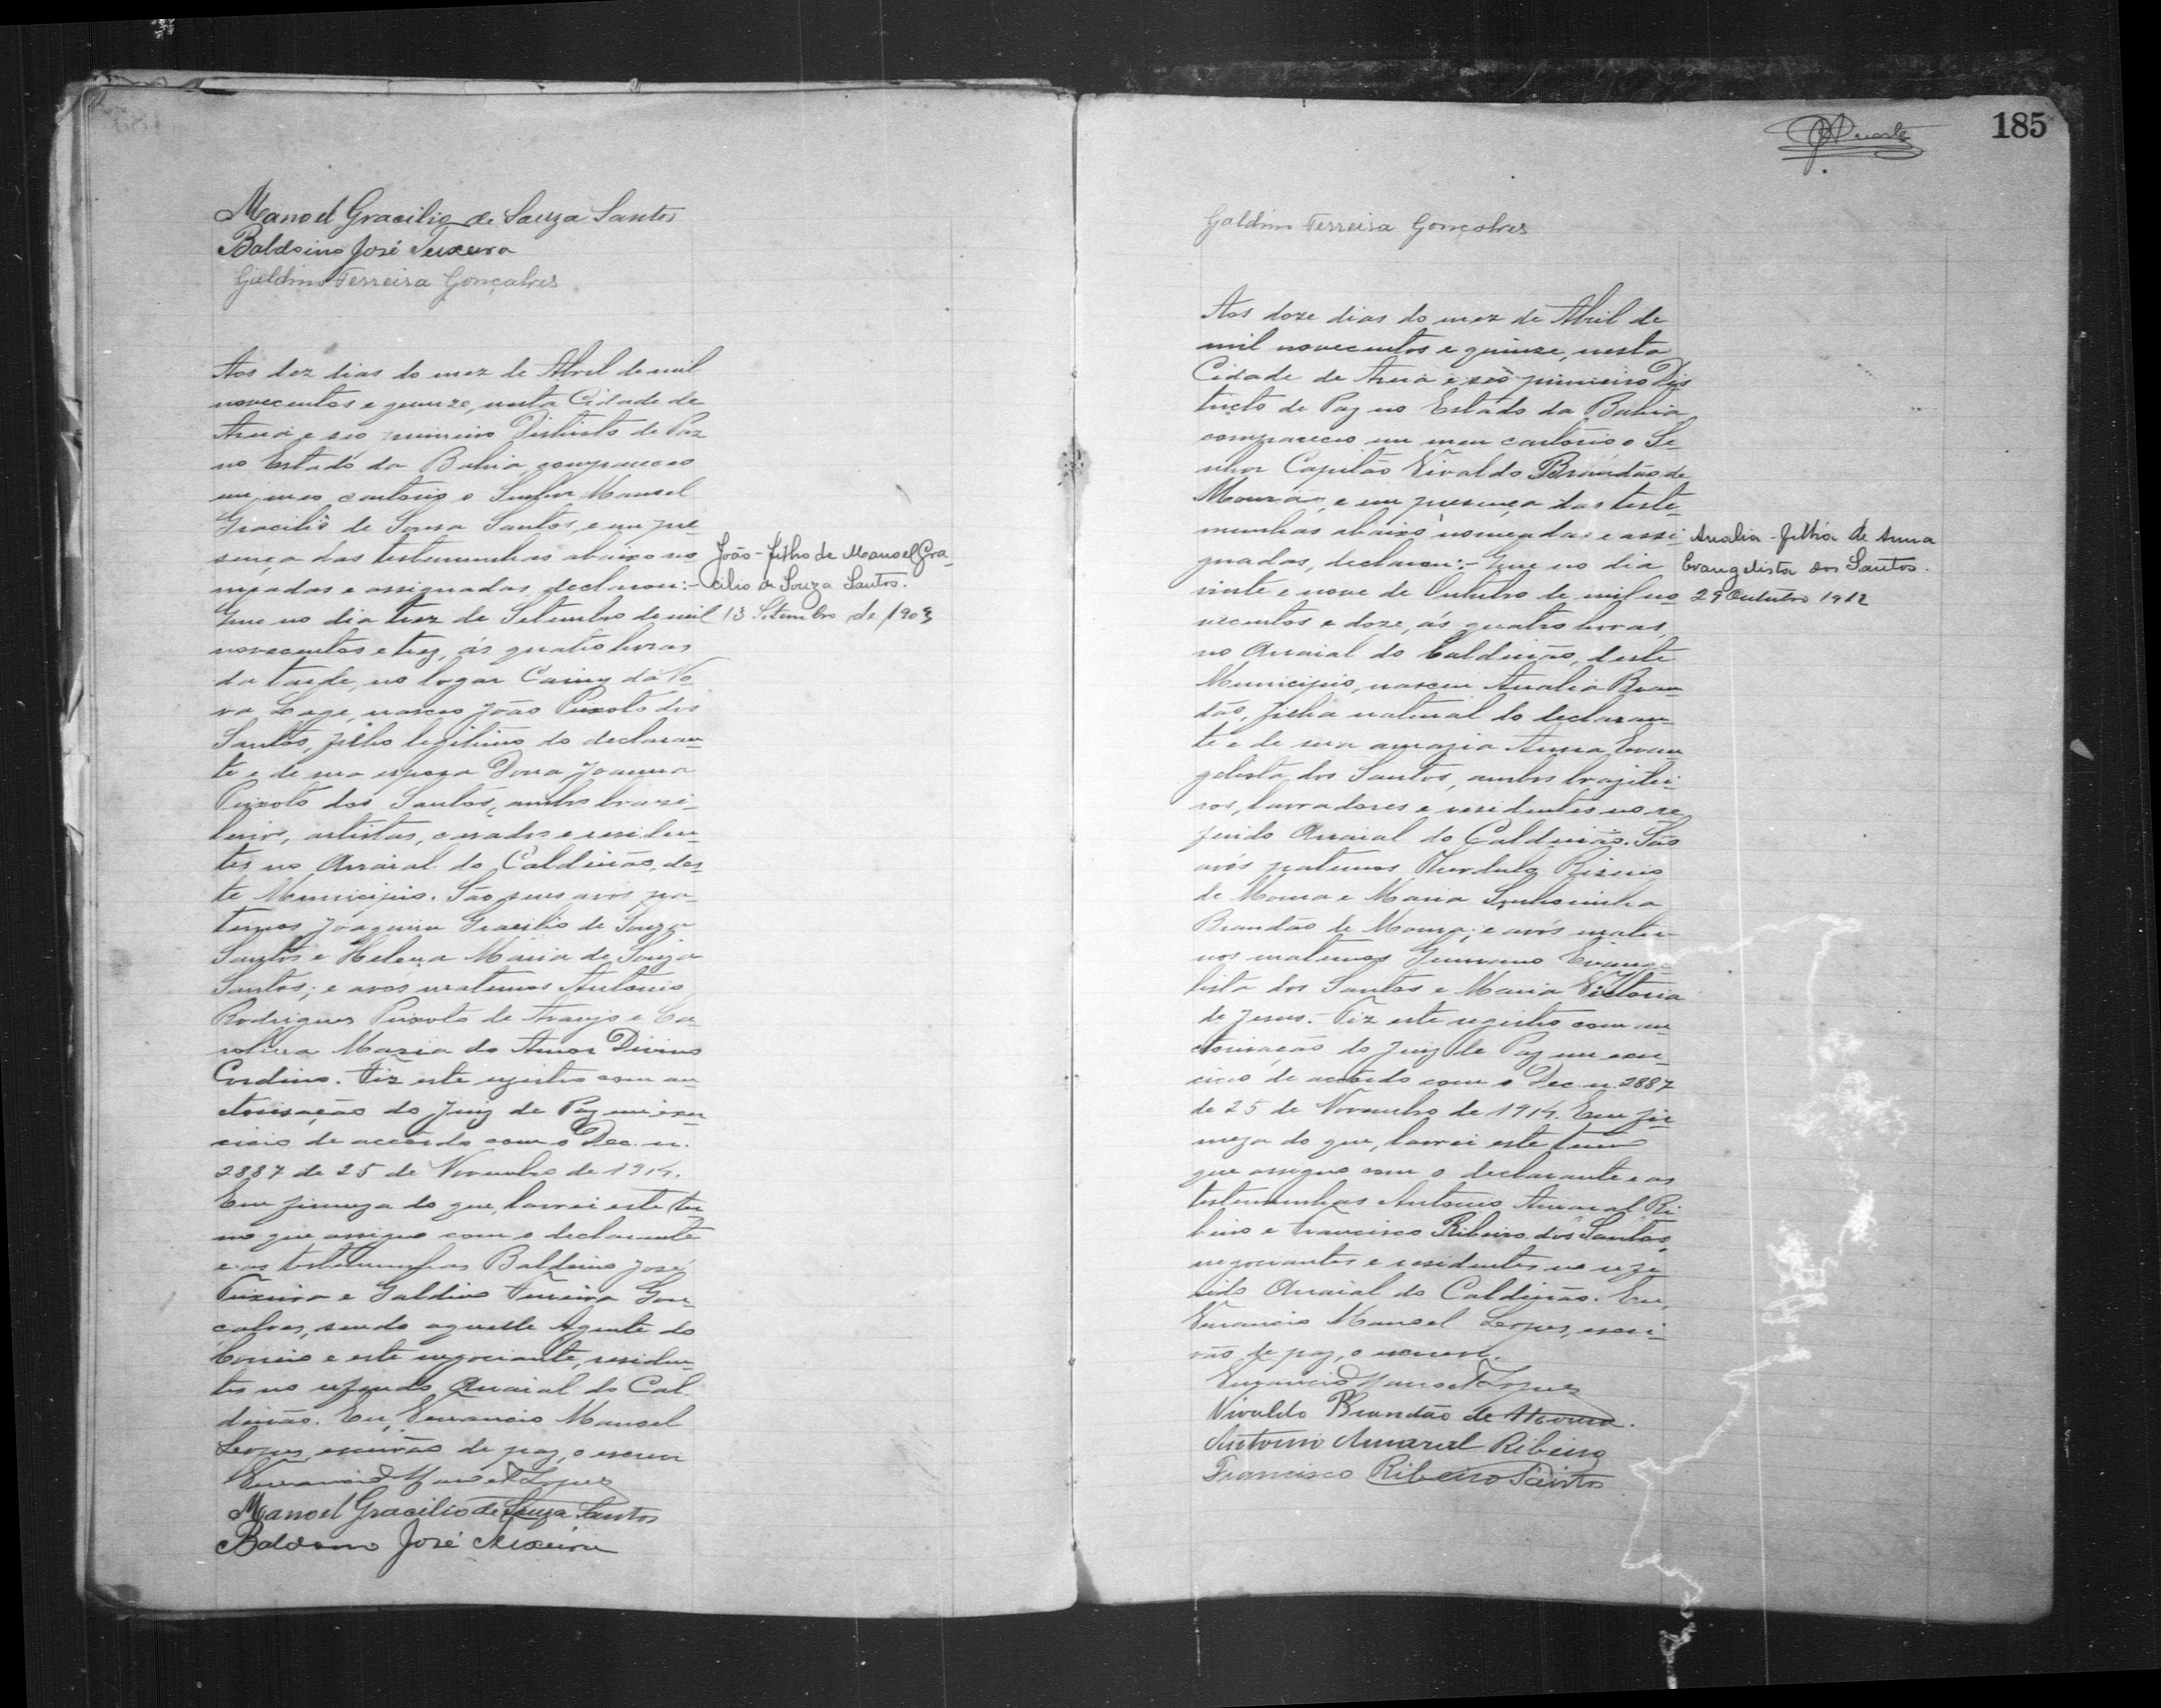 Manoel Gracilio de Sauza Santos
Baldoino José Teixeira
Galdino Ferreira Gonçalves
Aos dez dias do mez de Abril de mil
novecentos e quinze, nesta Cidade de
Areia e seo primeiro Districto de Paz
no Estado da Bahia, compareceo
em meo cartorio o Senhor Manoel
Gracilio de Souza Santos, e em pre-
sença das testemunhas abaixo no
meadas e assignadas, declarou:-
Que no dia trez de Setembro de mil
novecentos e trez, ás quatro horas
da tarde, no logar da No-
va Lage, nasceo João Peixoto dos
Santos, filho legitimo do declaran-
te e de sua esposa Dona Joanna
Peixoto dos Santos, ambos brazi-
leiros, artistas, casados e residen-
tes no Arraial do Caldeirão, des-
te Municipio. São seus avos pa-
ternos Joaquim Gracilio de Souza
Santos e Helena Maria de Souza
Santos; e avos maternos Antonio
Rodrigues Peixoto de Araujo e Ca-
rolina Maria do Amor Divino
Cordino. Fiz este registro com au-
ctorisação do Juiz de Paz em exer-
cicio de accordo com o Dec. n.
2887 de 25 de Novembro de 1914.
Em firmeza do que, lavrei este ter-
mo que assigno com o declarante
e as testemunhas Baldoino José
Teixeira e Galdino Ferreira Gon-
çalves, sendo aquelle Agente do
Correio e este negociante, residen-
tes no referido Arraial do Cal-
deirão. Eu, Venancio Manoel
Lopes, escrivão de paz, o escrevi
Venancio Manoel Lopes
Manoel Gracilio de Souza Santos
Baldoino José Teixeira
João - filho de Manoel Gra-
cilio de Souza Santos.
13 Setembro de 1903
185
Galdino Ferreira Gonçalves
Aos doze dias do mez de Abril de
mil novecentos e quinze, nesta
Cidade de Areia e seo primeiro Dis
tricto de Paz no Estado da Bahia,
compareceo em meu cartorio o Se-
nhor Capitão Vivaldo Brandão de
Moura, e em presença das teste-
munhas abaixo nomeadas e assi-
gnadas, declarou:- Que no dia
vinte e nove de Outubro de mil no
vecentos e doze, ás quatro horas,
no Arraial do Caldeirão, deste
Municipio, nasceu Analia Bran-
dão, filha natural do declaran-
te e de sua amazia Anna Evan-
gelista dos Santos, ambos brazilei-
ros, lavradores e residentes no re-
ferido Arraial do Caldeirão. São
avós paternos Rizerio
de Moura e Maria Senhorinha
Brandão de Moura; e avós mater-
nos maternos Evange
lista dos Santos e Maria Victoria
de Jesus. - Fiz este registro com au-
ctorisação do Juiz de Paz em exer-
cicio de accordo com o Dec. n. 2887
de 25 de Novembro de 1914. Em fir-
meza do que, lavrei este termo
que assigno com o declarante e as
testemunhas Antonio Amaral Ri-
beiro e Francisco Ribeiro dos Santos,
negociantes e residentes no refe
rido Arraial do Caldeirão. Eu,
Venancio Manoel Lopes, escri-
vão de paz, o escrevi.
Venancio Manoel Lopes
Vivaldo Brandão de Moura.
Antonio Amaral Ribeiro
Francisco Ribeiro Santos
Analia - filha de Anna
Evangelista dos Santos.
29 Outubro 1912